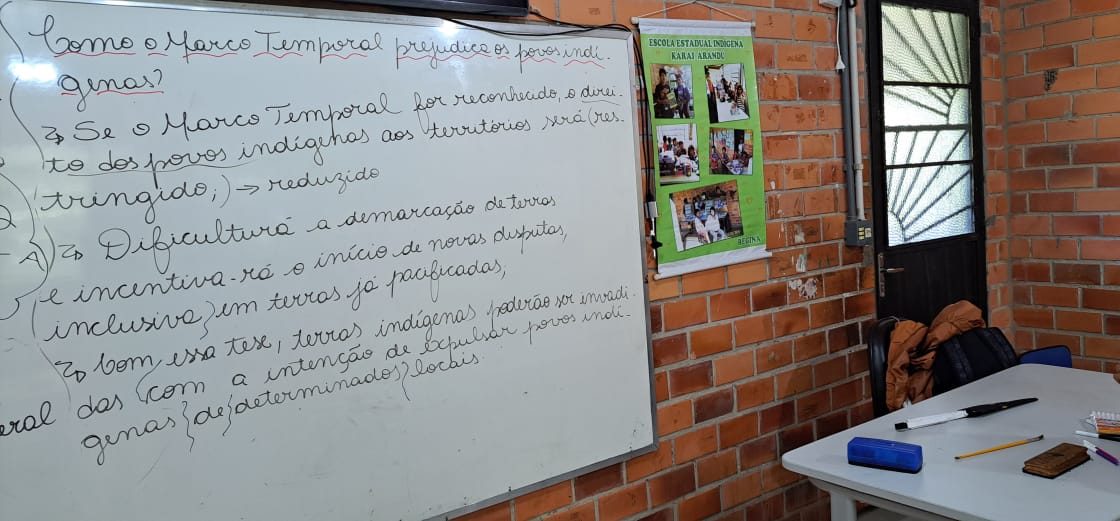 Como o Marco Temporal prejudica os povos indí-
genas?
Se o Marco Temporal for reconhecido, o direi-
to dos povos indígenas aos territórios será (res-
tringido;) → reduzido
Dificulturá a demarcação de terras
e incentiva-rá o início de novas disputas,
(inclusiva) em terras já pacificadas;
Com essa tese, terras indígenas poderão ser invadi-
das (com a intenção de expulsar povos indí-
genas {de} determinados} locais.
eral
A)
ESCOLA ESTADUAL INDÍGENA
KARAI ARANDU
REGINA